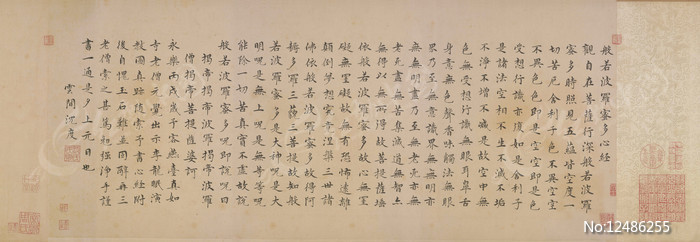 般若波羅蜜多心經
觀自在菩薩行深般若波羅
蜜多時照見五蘊皆空度一
切苦厄舍利子色不異空空
不異色色即是空空即是色
受想行識亦復如是舍利子
是諸法空相不生不滅不垢
不淨不增不減是故空中無
色無受想行識無眼耳鼻舌
身意無色聲香味觸法無眼
界乃至無意識界無無明亦
無無明盡乃至無老死亦無
老死盡無苦集滅道無智亦
無得以無所得故菩提薩埵
依般若波羅蜜多故心無罣
礙無罣礙故無有恐怖遠離
顛倒夢想究竟涅槃三世諸
佛依般若波羅蜜多故得阿
耨多羅三藐三菩提故知般
若波羅蜜多是大神呪是大
明呪是無上呪是無等等呪
能除一切苦真實不虛故說
般若波羅蜜多呪即說呪曰
揭帝揭帝波羅揭帝波羅
僧揭帝菩提薩婆訶
永樂丙戌歲予客燕臺真如
寺老僧元出示李龍眠演
教圖真跡隨索予書心經附
後自愧玉石雜並固辭再三
老僧索之甚篤勉強淨手謹
書一通是夕上元日也
雲間沈度
No:12486255